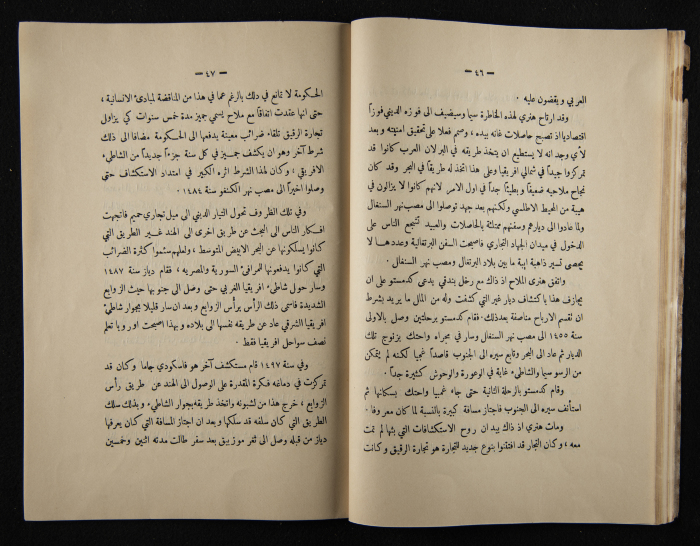 — ٤٦ —
العربي ويقضون عليه .
وقد ارتاح هنري لهذه الخاطرة سيما وسيضيف الى فوزه الديني فوزاً
اقتصادياً اذ تصبح حاصلات غانه بيده ، وصمم فعلا على تحقيق امنيته وبعد
لأي وجد انه لا يستطيع ان يتخذ طريقه في البر لان العرب كانوا قد
تمركزوا جيداً في شمالي افريقيا وعلى هذا اتخذ له طريقاً في البحر وقد كان
نجاح ملاحيه ضعيفاً وبطيئاً جداً في اول الامر لانهم كانوا لا يزالون في
هيبة من المحيط الاطلسي ولكنهم بعد جهد توصلوا الى مصب نهر السنغال
ولما عادوا الى ديارهم وسفنهم ممتلئة بالحاصلات والعبيد تشجع الناس على
الدخول في ميدان الجهاد التجاري فاصبحت السفن البرتغالية وعددها لا
يحصى تسير ذاهبة ايبة ما بين بلاد البرتغال ومصب نهر السنغال .
واتفق هنري الملاح اذ ذاك مع رجل بندقي يدعى كدمستو على ان
يجازف هذا باكتشاف ديار غير التي كشفت وله من المال ما يريد بشرط
ان تقسم الارباح مناصفة بعد ذلك . فقام كدمستو برحلتين وصل بالاولى
سنة ١٤٥٥ الى مصب نهر السنغال وسار في مجراه واحتك بزنوج تلك
الديار ثم عاد الى البحر وتابع سيره الى الجنوب قاصداً غمبيا لكنه لم يتمكن
من الرسو سيما والشاطىء غاية في الوعورة والوحوش كثيرة جداً .
وقام كدمستو بالرحلة الثانية حتى جاء غمبيا واحتك بسكانها ثم
استأنف سيره الى الجنوب فاجتاز مسافة كبيرة بالنسبة لما كان معروفا .
ومات هنري اذ ذاك بيد ان روح الاستكشافات التي بثها لم تمت
معه ، وكان التجار قد افتتنوا بنوع جديد للتجارة هو تجارة الرقيق وكانت
— ٤٧ —
الحكومة لا تمانع في ذلك بالرغم عما في هذا من المناقضة لمبادىء الانسانية ،
حتى انها عقدت اتفاقاً مع ملاح يسمى جميز مدة خمس سنوات كي يزاول
تجارة الرقيق تلقاء ضرائب معينة يدفعها الى الحكومة مضافا الى ذلك
شرط آخر وهو ان يكشف جميز في كل سنة جزءاً جديداً من الشاطىء
الافريقي ، وكان لهذا الشرط اثره الكبير في امتداد الاستكشاف حتى
وصلوا اخيراً الى مصب نهر الكنغو سنة ١٤٨٤ .
وفي تلك الظروف تحول التيار الديني الى ميل تجاري حميم فاتجهت
افكار الناس الى البحث عن طريق اخرى الى الهند غير الطريق التي
كانوا يسلكونها عن البحر الابيض المتوسط ، ولعلهم سئموا كثرة الضرائب
التي كانوا يدفعونها للمرافىء السورية والمصرية ، فقام دياز سنة ١٤٨٧
وسار حول شاطىء افريقيا الغربي حتى وصل الى جنوبها حيث الزوابع
الشديدة فاسمى ذلك الرأس برأس الزوابع وبعد ان سار قليلا بجوار شاطىء
افريقيا الشرقي عاد عن طريقه نفسها الى بلاده وبهذا اصبحت اوروبا تعلم
نصف سواحل افريقيا فقط .
وفي سنة ١٤٩٧ قام مستكشف آخر هو فاسكودي جاما وكان قد
تمركزت في دماغه فكرة المقدرة على الوصول الى الهند عن طريق رأس
الزوابع ، خرج هذا من لشبونه واتخذ طريقه بجوار الشاطىء وبذلك سلك
الطريق التي كان سلفه قد سلكها وبعد ان اجتاز المسافة التي كان يعرفها
دياز من قبله وصل الى ثغر موزبيق بعد سفر طالت مدته اثنين وخمسين